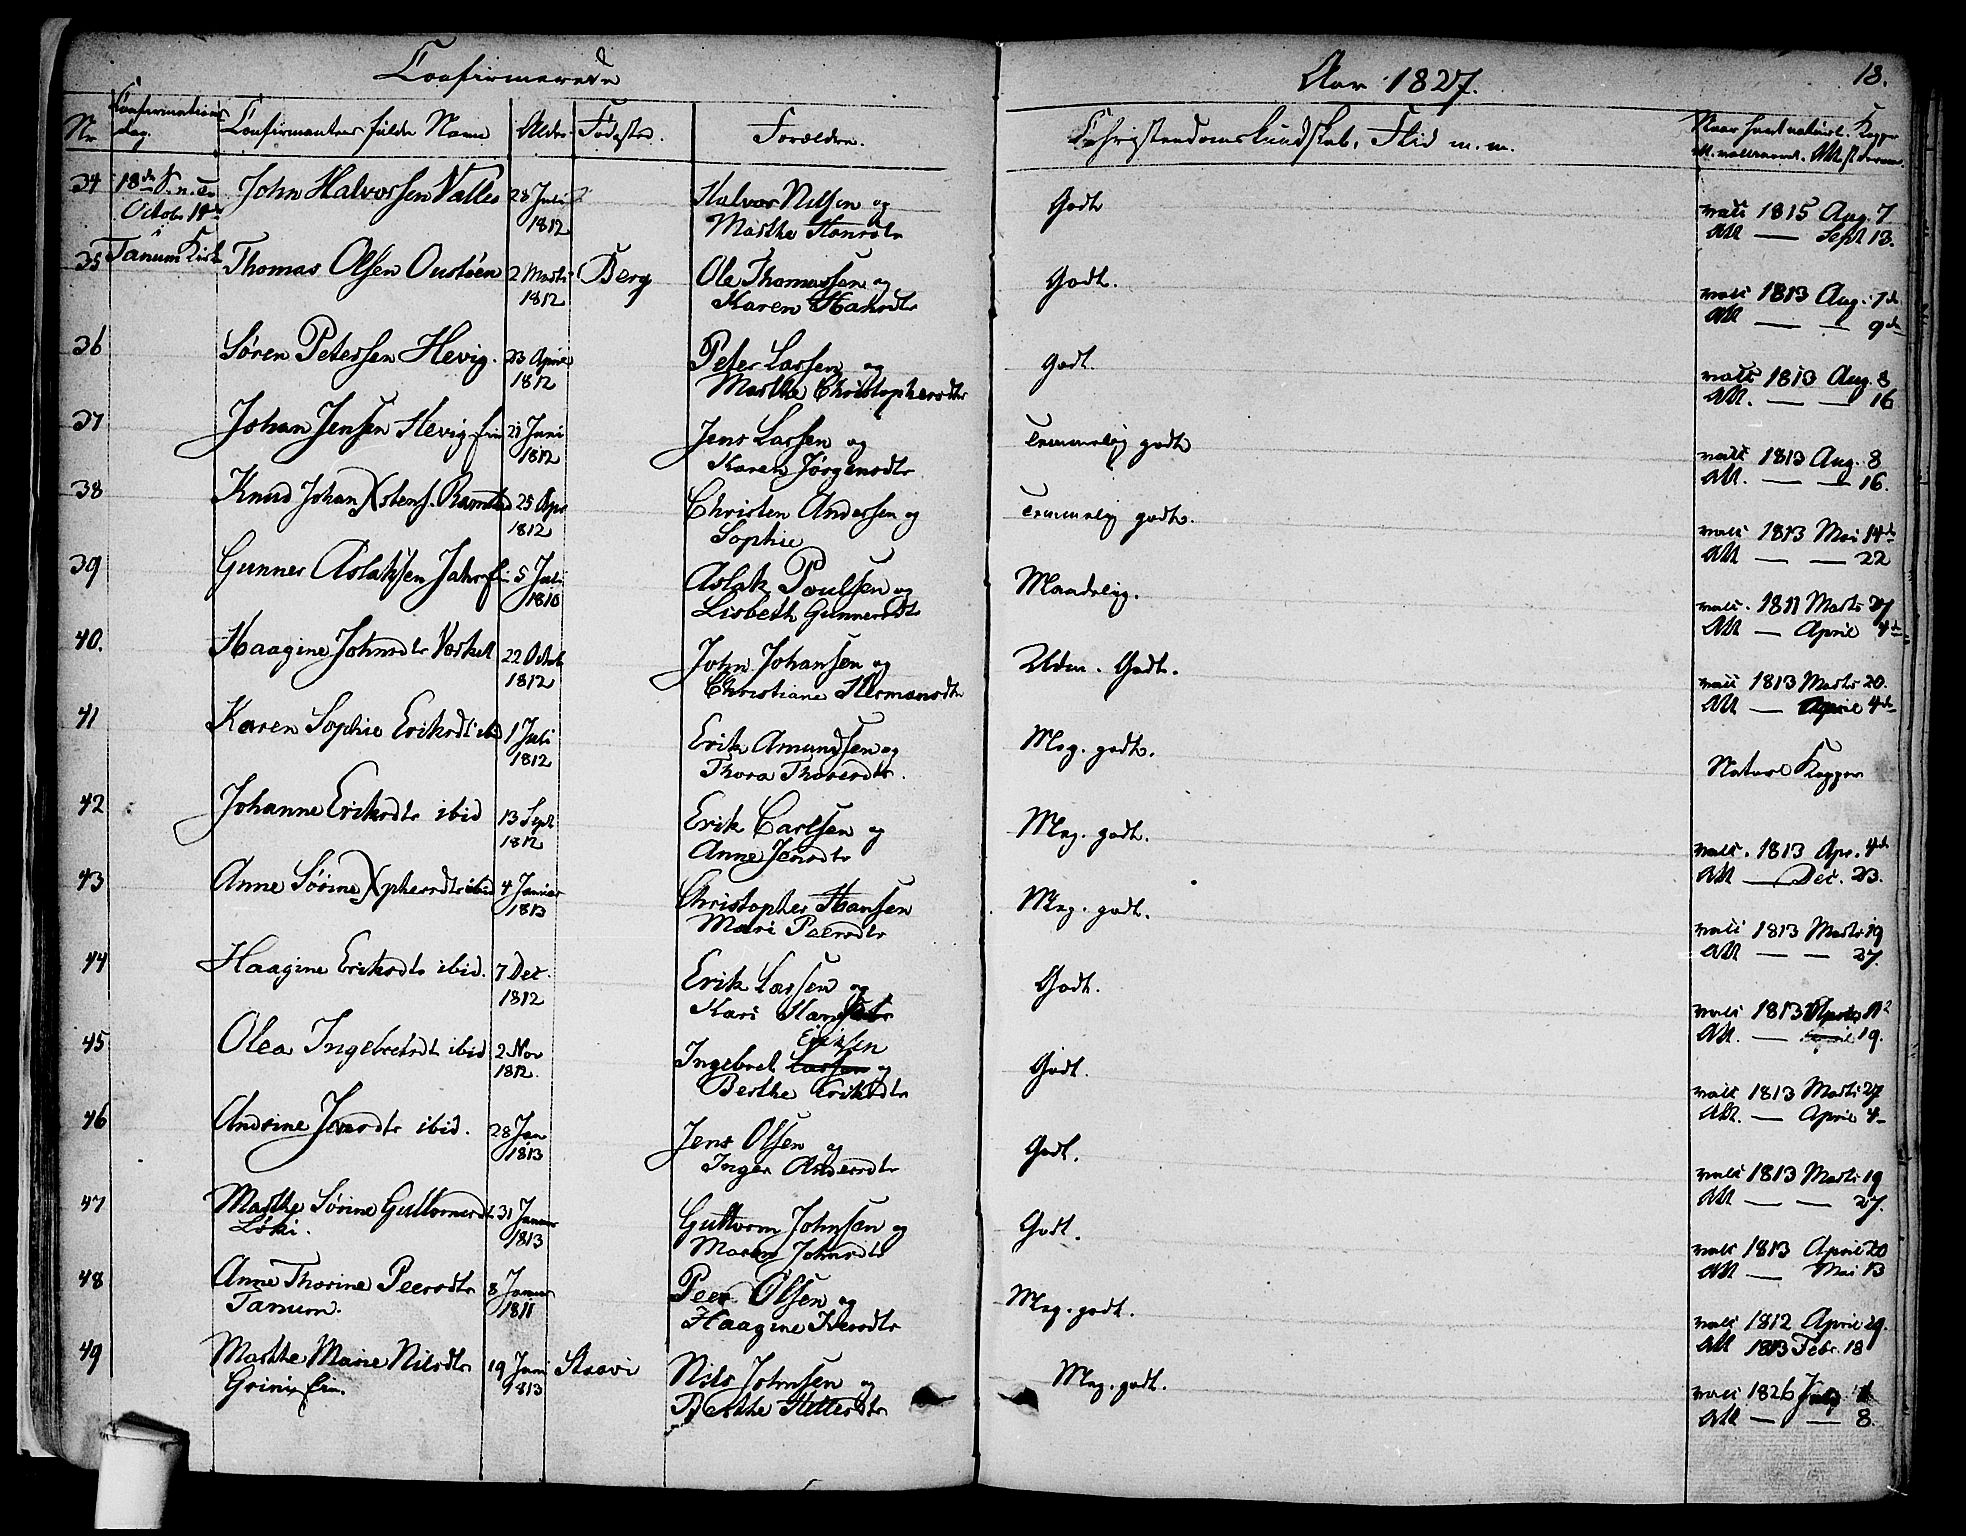 Confirmerede
Aar 1827.
18.
Nr
Confirmations dag.
Confirmantens fulde Navn
Alder
Fødested.
Forældre.
Christendomskundskab, Flid m. m.
Naar havt naturl. Kopper
ell. vaccineret. Att. derom.
34 18de S. n. Tr. John Halvorsen Valles 28 Juli Halvor Nilsen og Godt vacc 1815 Aug. 7
Octobr 14de 1812 Marthe Hansdtr Att — Sept 13.
35 Tanum Kirke Thomas Olsen Oustøen 2 Marts Berg Ole Thomassen og Godt. vacc 1813 Aug. 1de
1812 Karen Hansdtr Att — — 9de
36 Søren Petersen Hevig. 23 April Peter Larsen og Godt. vacc 1813 Aug. 8
1812 Marthe Christophersdtr Att. — — 16
37 Johan Jensen Hevig 21 Juni Jens Larsen og temmelig godt vacc 1813 Aug. 8
1812 Karen Jørgensdtr Att. — — 16.
38 Knud Johan Xstens. Ramstad 25 Apr Christen Andersen og temmelig godt. vacc 1813 Mai 14de
1812 Sophie Att — — 22
39 Gunner Aslaksen Jahr 5 Juli Aslak Poulsen og Maadelig. vacc. 1811 Marts 27
1810 Lisbeth Gunnersdtr Att — April 4de
40. Haagine Johnsdtr 22 Octob John Johansen og Udm. Godt. vacc 1813 Marts 20.
1812 Christiane Hermansdtr Att — April 4de
41 Karen Sophie Eriksdt ibid 1 Juli Erik Amundsen og Meg. godt. Naturl Kopper
1812 Thora Thoresdtr.
42 Johanne Eriksdtr ibid 13 Sept Erik Carlsen og Meg. godt. vacc. 1813 Apr. 4de
1812 Anne Jensdtr Att — Dec. 23.
43 Anne Sørine Xphersdtr ibid 4 Januar Christopher Hansen Meg. godt. vacc 1813 Marts 19
1813 Mari Peersdtr Att — — 27.
44 Haagine Eriksdtr ibid. 7 Dec. Erik Larsen og Godt. vacc 1813
1812 Kari Att. — 19.
45 Olea Ingebretsdt ibid 2 Nov Ingebret Larsen og Godt. vacc 1813 Marts 27
1812. Berthe Eriksdtr Att. — April 4
46 Andrine Jensdtr ibid. 28 Jan Jens Olsen og Godt. vacc 1813 Marts 19
1813 Inger Andersdtr Att — — 27.
47 Marthe Sørine Guttormsdt 31 Januar Guttorm Johnsen og Godt. vacc 1813 April 20
Løki. 1813 Maren Johnsdtr Att — Mai 13
48 Anne Thorine Peersdtr 8 Januar Peer Olsen og Meg. godt. vacc 1812 April 29.
Tanum. 1811 Haagine Iversdtr Att 1813 Febr. 18
49 Marthe Marie Nilsdtr 19 Juni Staavi Nils Johnsen og Meg. godt. vacc 1826 July 1
Grini 1813 Berthe Att — — 8.